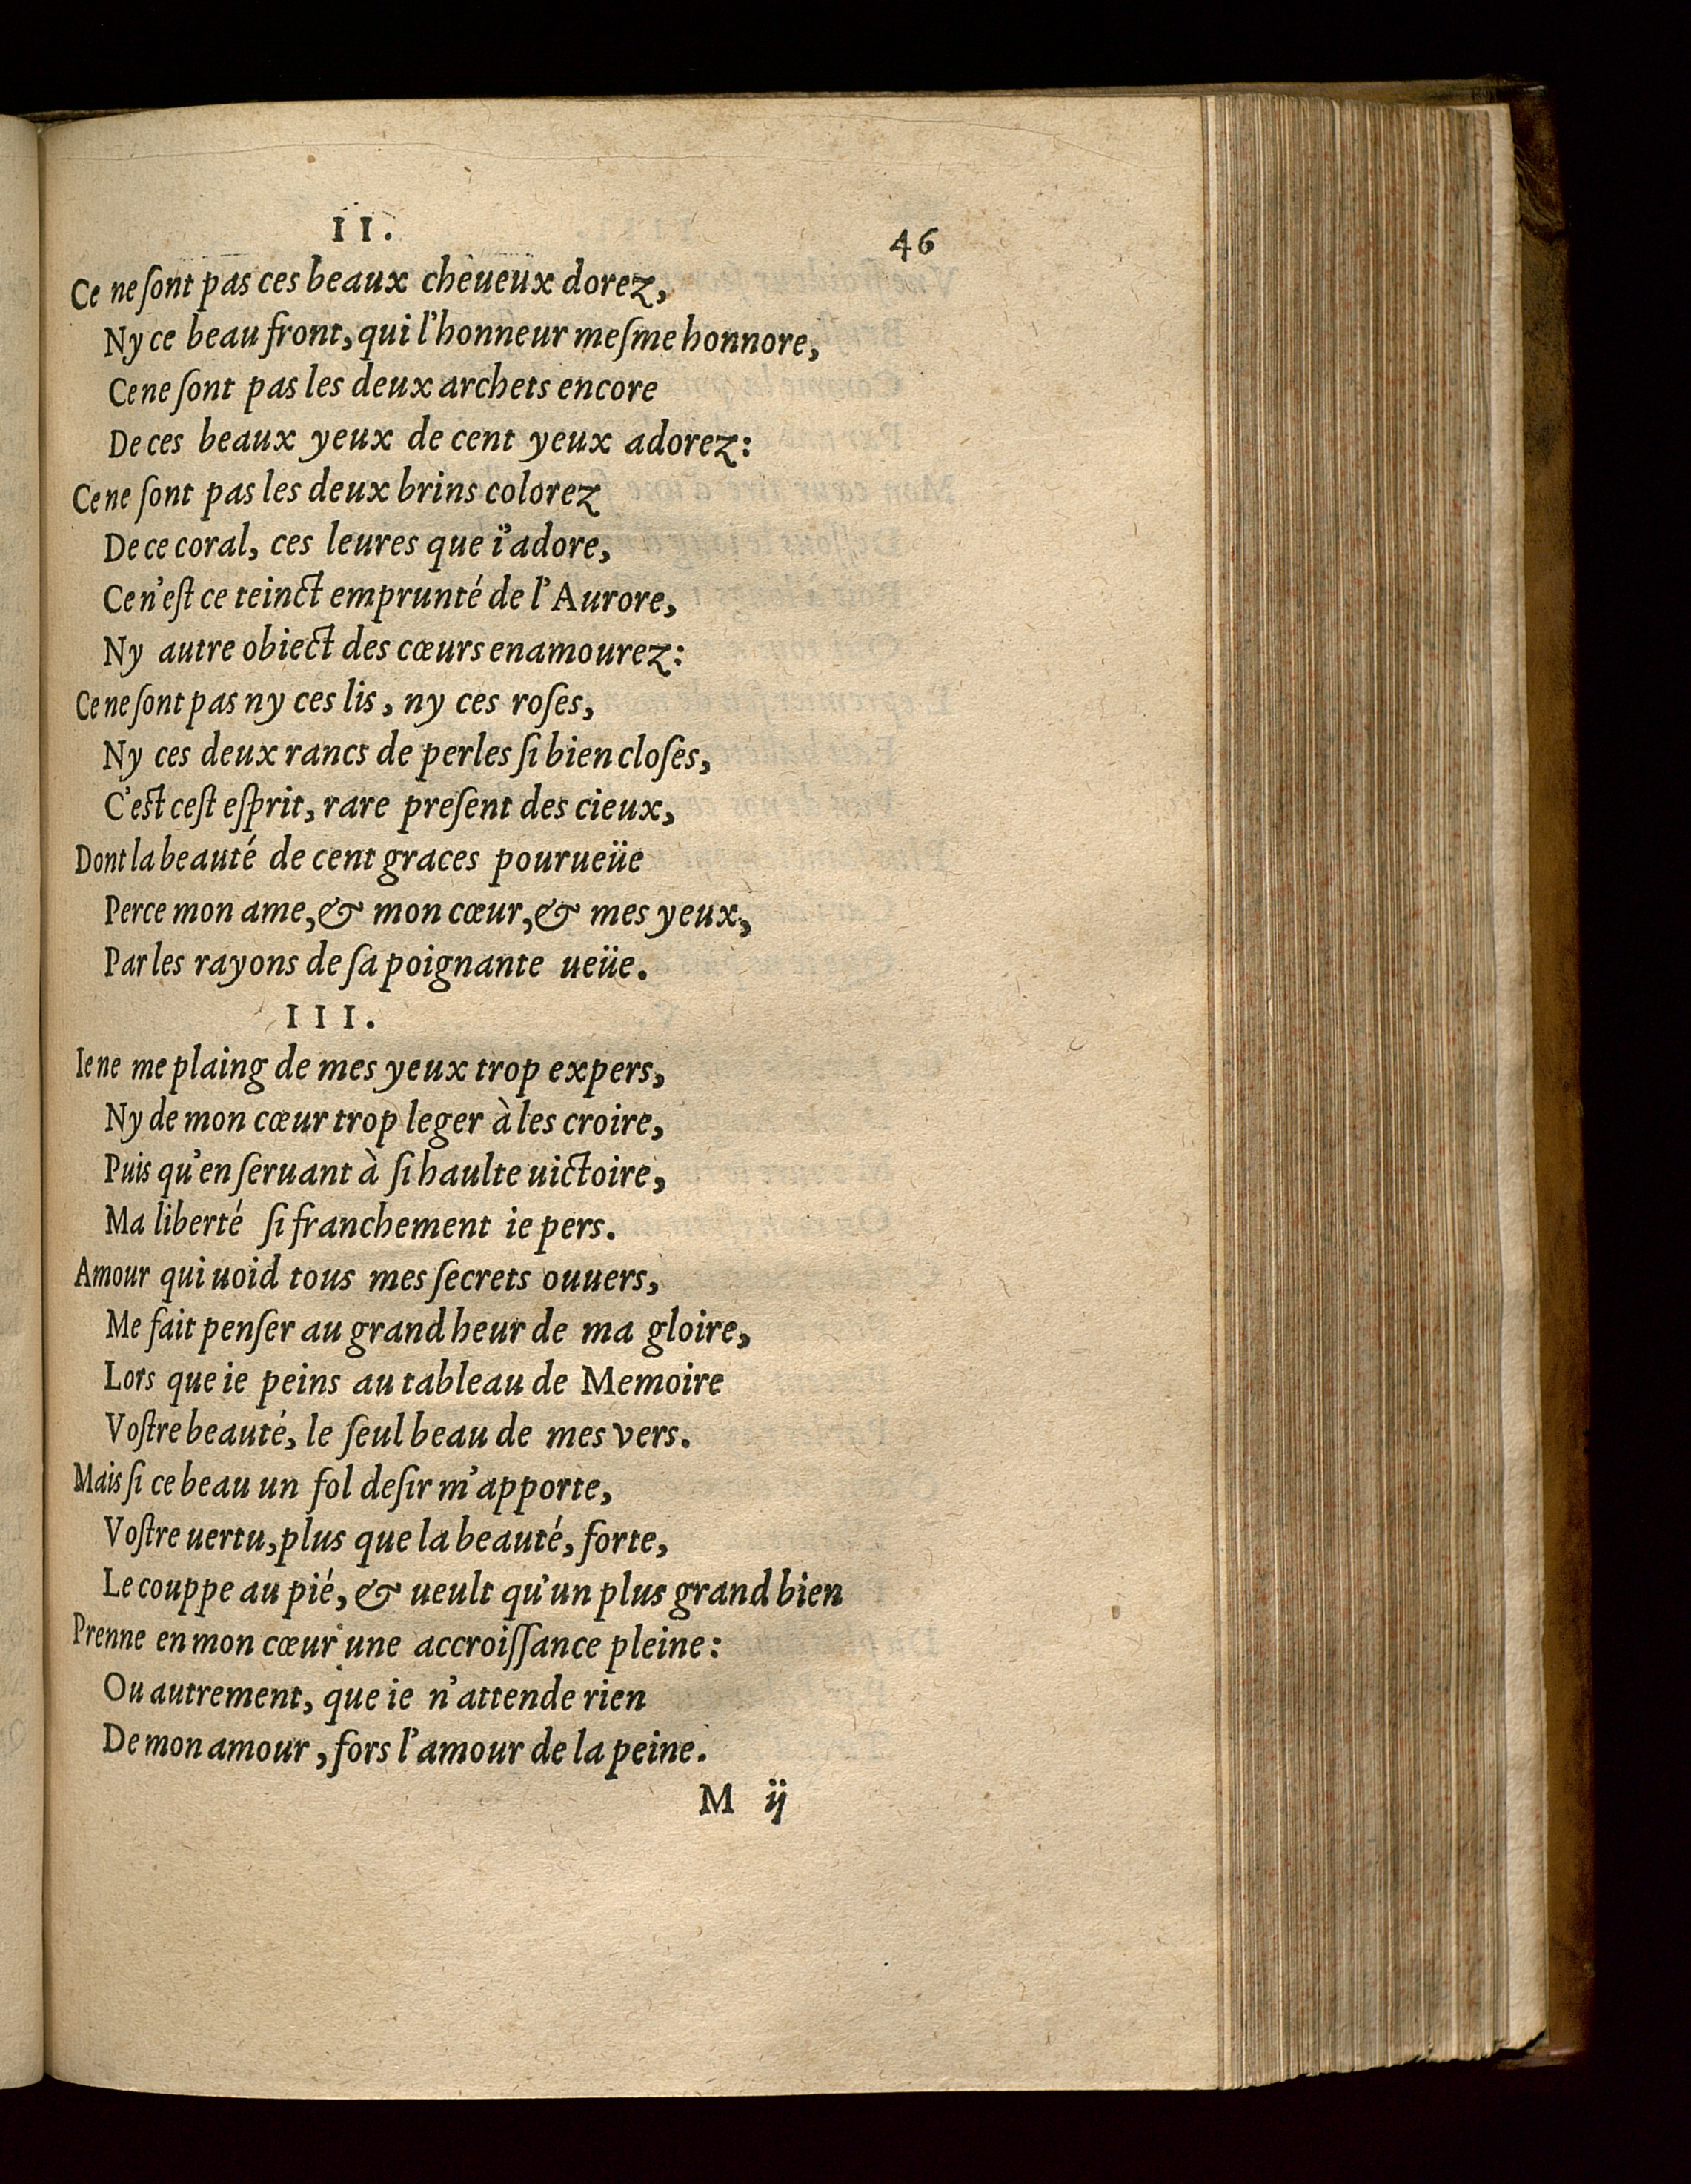 II.
46
Ce ne ſont pas ces beaux cheueux dorez,
Ny ce beau front, qui l'honneur meſme honnore,
Ce ne ſont pas les deux archets encore
De ces beaux yeux de cent yeux adorez:
Ce ne ſont pas les deux brins colorez
De ce coral, ces leures que i'adore,
Ce n'eſt ce teinct emprunté de l'Aurore,
Ny autre obiect des cœurs enamourez:
Ce ne ſont pas ny ces lis, ny ces roſes,
Ny ces deux rancs de perles ſi bien cloſes,
C'eſt ceſt eſprit, rare preſent des cieux,
Dont la beauté de cent graces pourueüe
Perce mon ame, & mon cœur, & mes yeux,
Par les rayons de ſa poignante ueüe.
III.
Ie ne me plaing de mes yeux trop expers,
Ny de mon cœur trop leger à les croire,
Puis qu'en ſeruant à ſi haulte uictoire,
Ma liberté ſi franchement ie pers.
Amour qui uoid tous mes ſecrets ouuers,
Me fait penſer au grand heur de ma gloire,
Lors que ie peins au tableau de Memoire
Voſtre beauté, le ſeul beau de mes vers.
Mais ſi ce beau un fol deſir m'apporte,
Voſtre uertu, plus que la beauté, forte,
Le couppe au pié, & ueult qu'un plus grand bien
Prenne en mon cœur une accroiſſance pleine:
Ou autrement, que ie n'attende rien
De mon amour, fors l'amour de la peine.
M ij